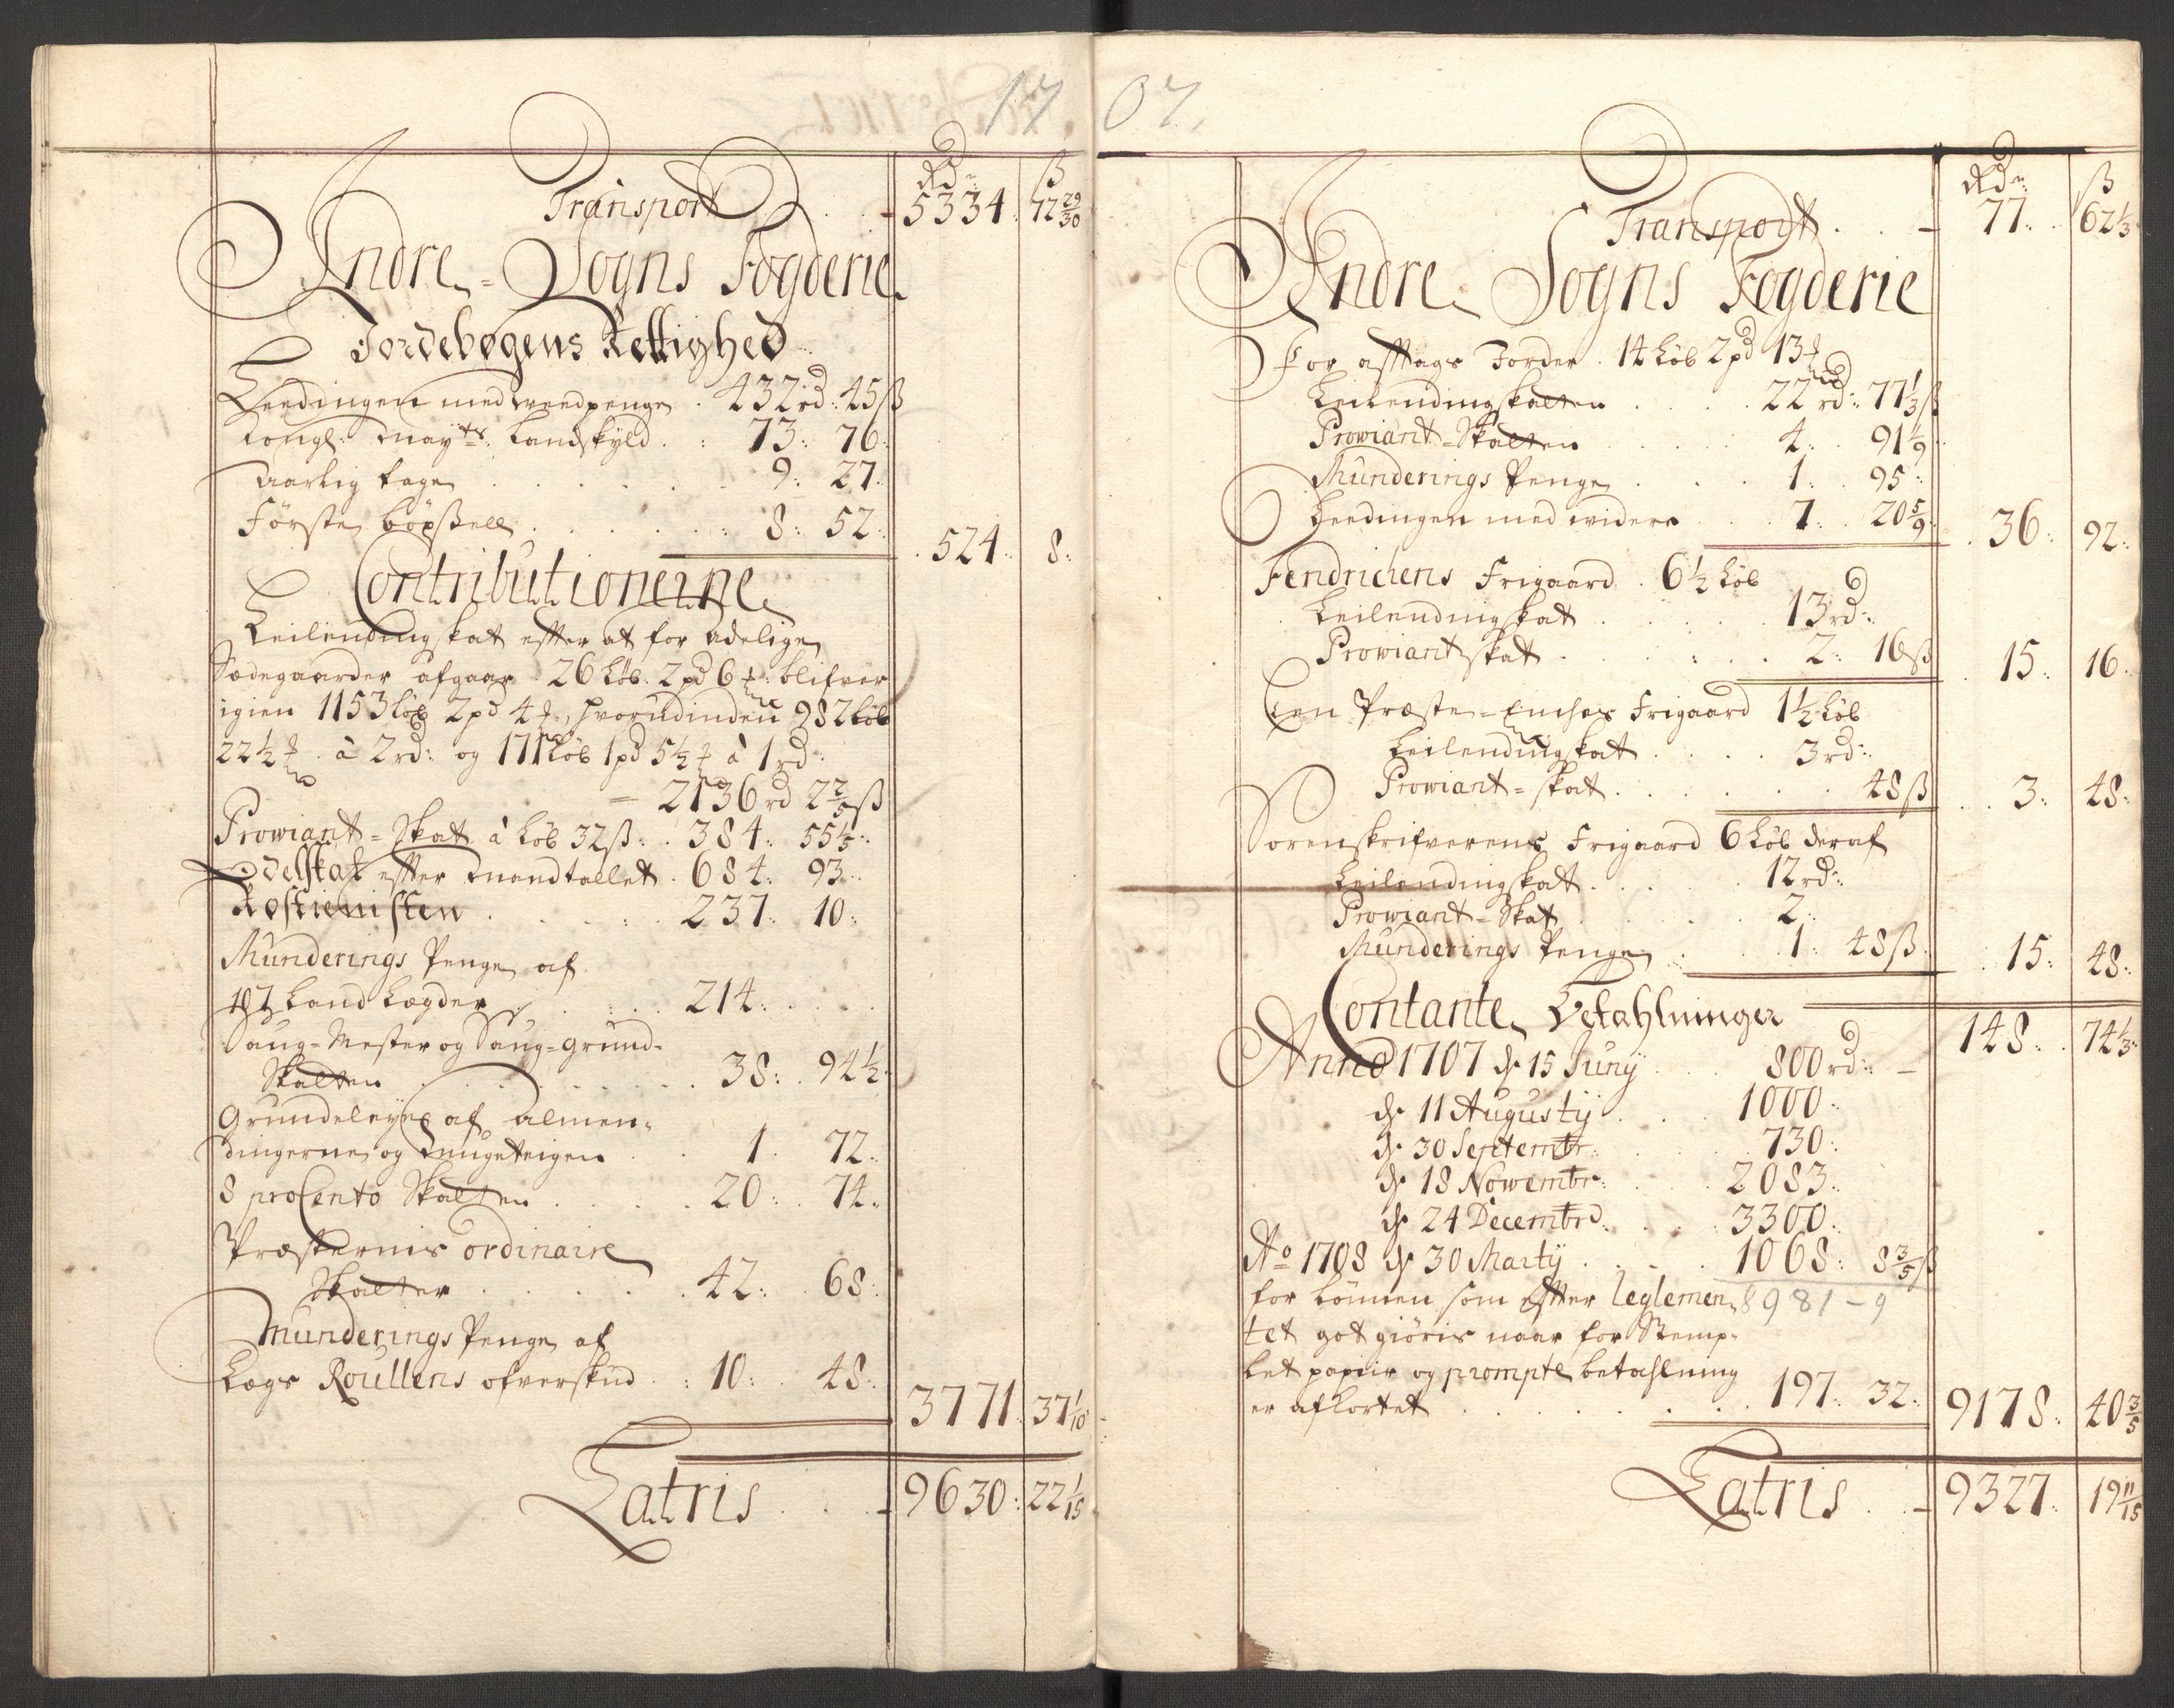 17
Rdr ß
Transport . . 5334: 72 29/30
Indre Sogns Fogderie
Jordebogens Rettighed
Leedingen med weedpenge . 432 rd: 45 ß
Kongl: Mayts: Landskyld . : 73: 76:
Aarlig tage . . . . 9: 27:
Første böxsell . . . . 8: 52: 524: 8:
Contributionerne
Leilendingskat effter at for Adelige
Sædegaarder afgaar 26 Løb. 2 pd 6 blifver
igien 1153 Løb 2 pd 4, hvorudinden 982 Løb
22½ à 2 rd: og 171 Løb 1 pd 5½ à 1 rd:
2136 rd 2 2/5 ß
Prowiant-Skat à Løb 32 ß: . 384: 55 1/5:
Odelskat effter Mandtallet . 684: 93:
Rostienisten . . . 237: 10:
Munderings Penge af
107 Land Lægder . . . 214: . . .
Saug-Mester og Saug-Grund-
Skatten . . . . 38: . 94½:
Grundeleyne af Almen-
dingerne og . . 1. 72:
8 proCento Skatten . . . . 20: 74:
Præsternis ordinaire
Skatter . . . . . 42: 68:
Munderings Penge af
Lægs Roullens ofverskud . : 10: . 48: 3771: 37 1/10
Latris . . 9630: 22 1/15
07.
Rdr: ß
Transport . . 77: . 62 1/3
Indre Sogns Fogderie
For afftags Jorder . 14 Løb 2 pd 13
Leilendingskatten . . . 22 rd: 77 1/3 ß
Prowiant-Skatten . . . 4: . 91 1/9
Munderings Penge . . . 1: . 95:
Leedingen med widere . . 7: . 20 5/9 36: 92:
Fendrichens Frigaard . 6½ Løb
Leilendingskat . . . . 13 rd:
Prowiantskat . . . . 2: 16 ß 15: 16:
Een Præste-Enches Frigaard 1½ Løb
Leilendingskat . . . 3 rd:
Prowiant-skat . . . . . 48 ß . . 3: 48:
Sorenskrifverens Frigaard 6 Løb deraf
Leilendingskat . . . . 12 rd:
Prowiant-Skat . . . . 2:
Munderings Penge . . 1: 48 ß . 15: 48:
Contante Betahlninger
148: . 74 1/3
Anno 1707 d: 15 Juny . . 800 rd:
d: 11 Augustij . . . 1000:
d: 30 Septembr: . . . 730:
d: 18 Nowembr: . . . 2083:
d: 24 Decembr: . . . 3300:
Ao 1708 d: 30 Martij . . . 1068: 8 3/5 ß
for Lönnen som effter Reglemen- 8981 - 9
tet got giöris naar for Stemp-
let papiir og prompte betahlning
er afkortet . . . . . . 197: 32: 9178: 40 3/5
Latris . . 9327: 19 11/15